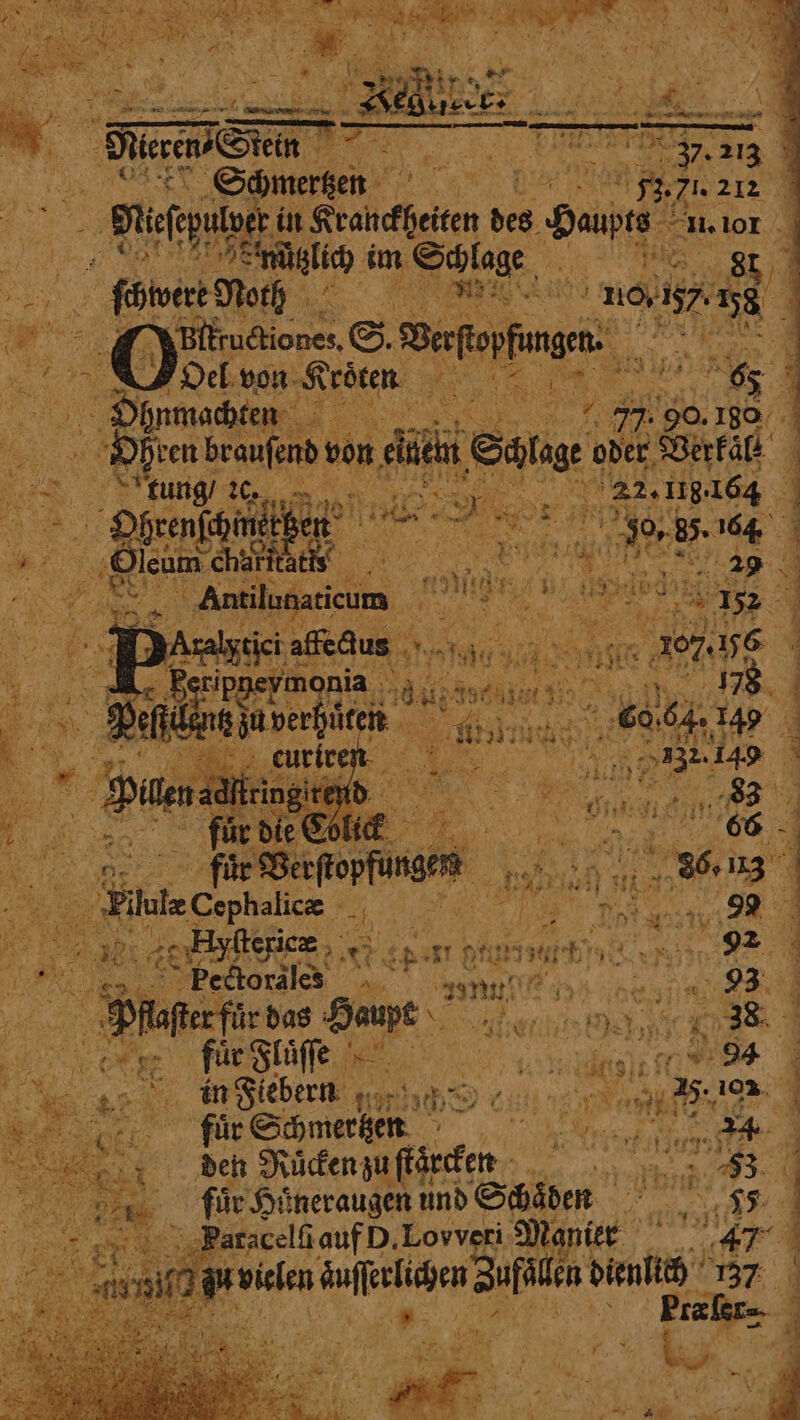 Register.
Nieren-Stein 37. 213
Schmertzen 53. 71. 212
Nieſepulver in Kranckheiten des Haupts 11. 101
nuͤtzlich im Schlage 81
ſchwere Noth 110, 157. 158
OBſtructiones. S. Verſtopfungen.
Oel von Kroͤten 65
Ohnmachten 77. 90. 180
Ohren brauſend von einem Schlage oder Verkaͤl-
tung/ ꝛc. 22. 118. 164
Ohrenſchmertzen 30, 85. 164
Oleum charitatis 29
Antilunaticum 152
PAralytici affectus 107. 156
Peripneymonia 178
Peſtilentz zu verhuͤten 60. 64. 149
curiren 132. 149
Pillen adſtringirend 83
fuͤr die Colick 66
fuͤr Verſtopfungen 86, 113
Pilulæ Cephalicæ 99
Hyſtericæ 92
Pectorales 93
Pflaſter fuͤr das Haupt 38
fuͤr Fluͤſſe 94
in Fiebern 25. 102
fuͤr Schmertzen 24
den Ruͤcken zu ſtaͤrcken 53
fuͤr Huͤneraugen und Schaͤden 55
Paracelſi auf D. Lovveri Manier 47
zu vielen aͤuſſerlichen Zufaͤllen dienlich 137
Præſer-